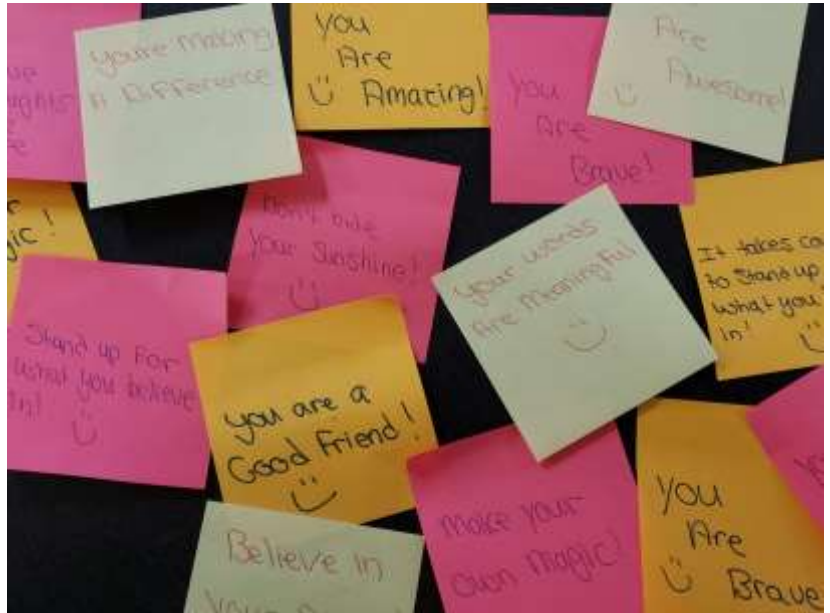 You're Making
A Difference
You
Are
Amazing!
You
Are
Brave!
Are
Awesome!
Don't hide
Your Sunshine!
Your words
Are Meaningful
It takes
to Stand up
what you
In!
Stand up For
what you believe
In!
You are a
Good Friend!
Make Your
Own Magic!
You
Are
Brave
Believe In